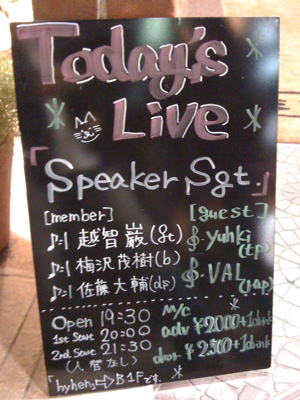 Today's
Live
「Speaker Sgt.」
[member]
越智 巌(gt)
梅沢 茂樹(b)
佐藤 大輔(ds)
[guest]
yuhki
(tp)
VAL
(rap)
Open 19:30
1st Start 20:00
2nd Start 21:30
(入替なし)
M/C
adv ¥2000+1drink
door ¥2500+1drink
⇨B1Fです。